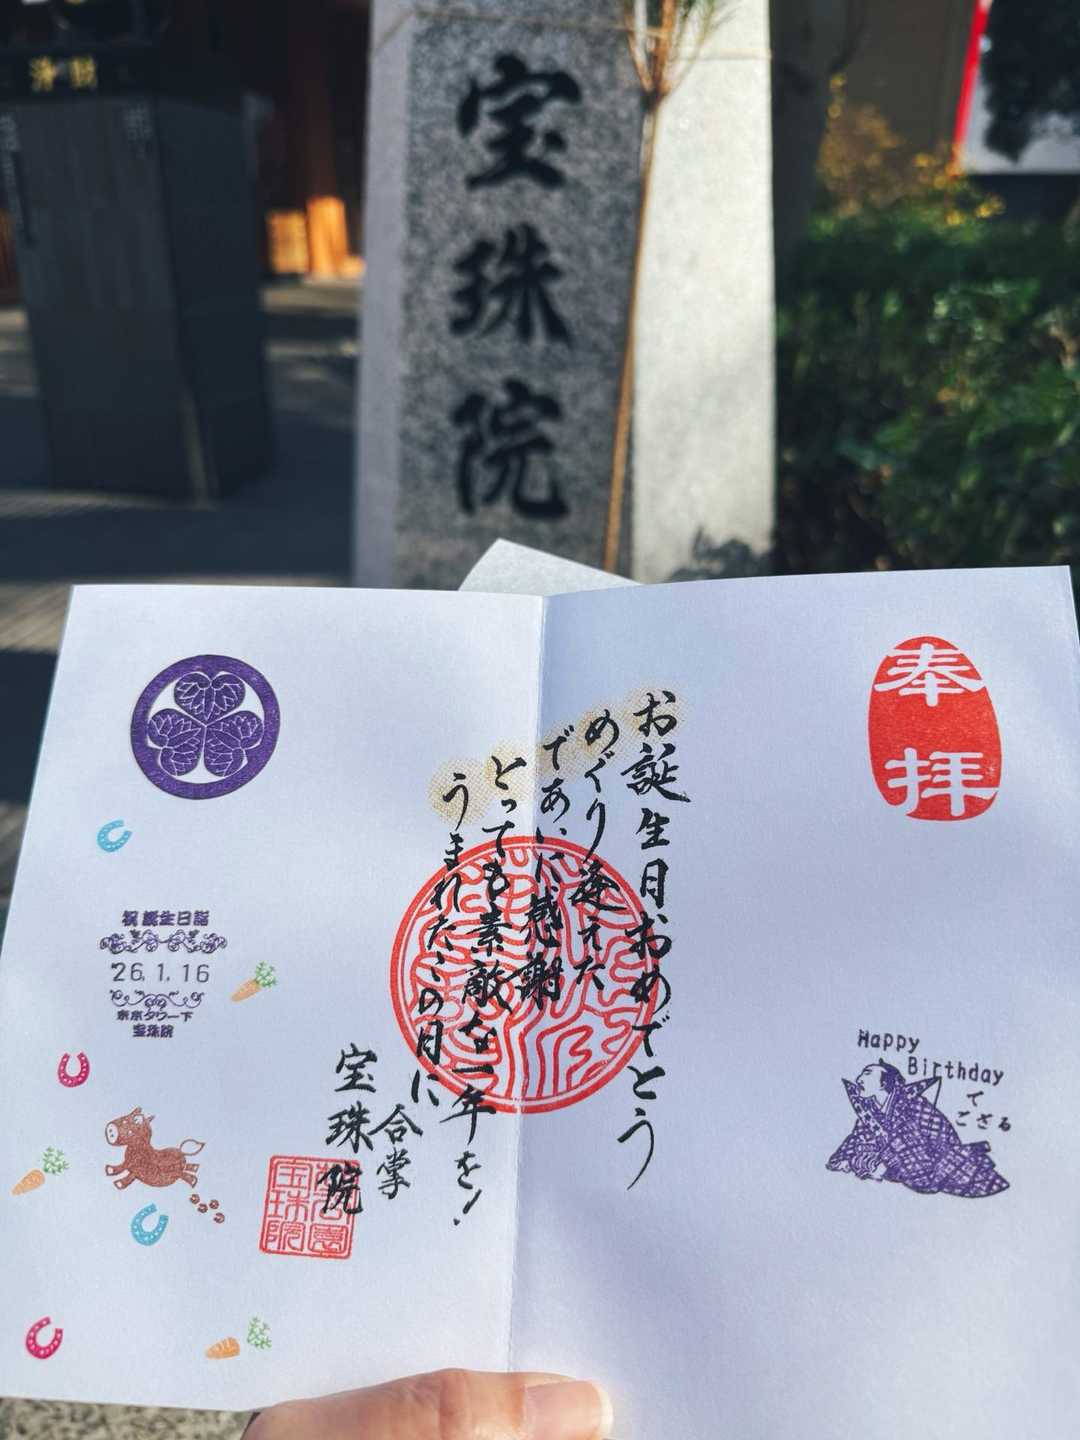 浄財
宝珠院
奉拝
お誕生日おめでとう
めぐり逢えた
であいに感謝
とっても素敵な一年を!
うまれたこの日に
合掌
宝珠院
Happy
Birthday
で
ござる
祝 誕生日詣
'26.1.16
東京タワー下
宝珠院
宝珠院